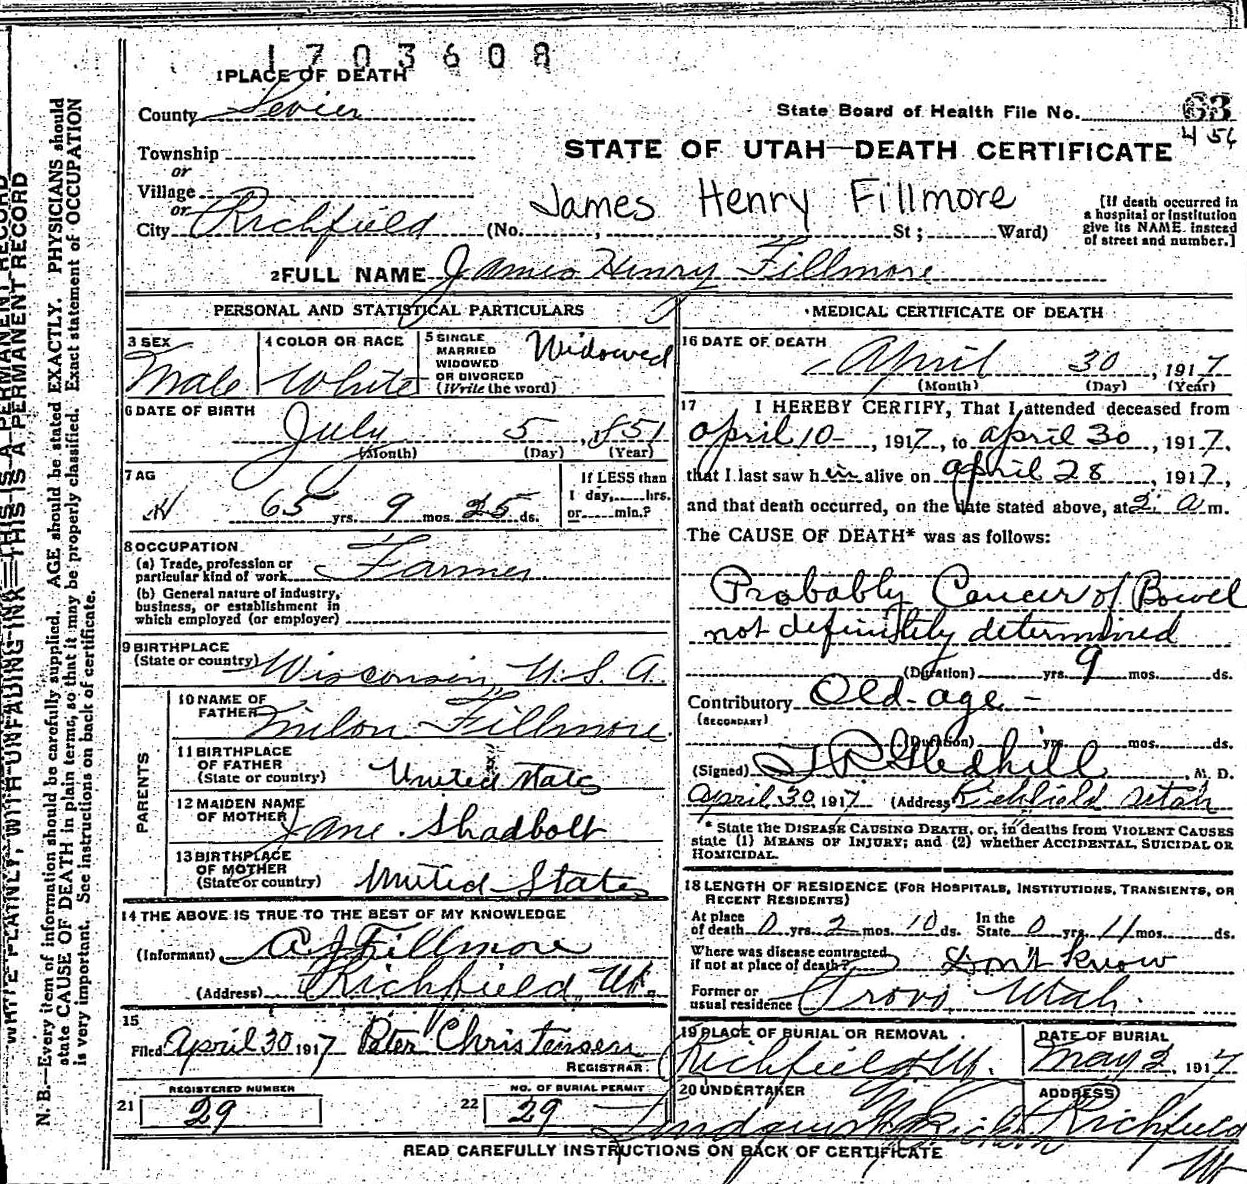 1703608
1 PLACE OF DEATH
County Sevier
State Board of Health File No. 63
456
Township
or
STATE OF UTAH—DEATH CERTIFICATE
Village
or
James Henry Fillmore
City Richfield (No. , St ; Ward)
[If death occurred in
a hospital or institution
give its NAME instead
of street and number.]
2 FULL NAME James Henry Fillmore
PERSONAL AND STATISTICAL PARTICULARS
3 SEX
Male
4 COLOR OR RACE
White
5 SINGLE
MARRIED
WIDOWED
OR DIVORCED
(Write the word)
Widowed
6 DATE OF BIRTH
July 5, 1851
(Month) (Day) (Year)
7 AG
65 yrs. 9 mos. 25 ds.
If LESS than
1 day, hrs.
or min.?
8 OCCUPATION
(a) Trade, profession or
particular kind of work Farmer
(b) General nature of industry,
business, or establishment in
which employed (or employer)
9 BIRTHPLACE
(State or country) Wisconsin U.S.A.
PARENTS
10 NAME OF
FATHER Milon Fillmore
11 BIRTHPLACE
OF FATHER
(State or country) United States
12 MAIDEN NAME
OF MOTHER Jane Shadbolt
13 BIRTHPLACE
OF MOTHER
(State or country) United States
14 THE ABOVE IS TRUE TO THE BEST OF MY KNOWLEDGE
(Informant) A J Fillmore
(Address) Richfield, Ut.
15
Filed April 30 1917 Peter Christensen
REGISTRAR
REGISTERED NUMBER
21 29
NO. OF BURIAL PERMIT
22 29
MEDICAL CERTIFICATE OF DEATH
16 DATE OF DEATH
April 30, 1917
(Month) (Day) (Year)
17 I HEREBY CERTIFY, That I attended deceased from
April 10, 1917, to April 30, 1917,
that I last saw him alive on April 28, 1917,
and that death occurred, on the date stated above, at 2 a m.
The CAUSE OF DEATH* was as follows:
Probably Cancer of Bowel
not definitely determined
(Duration) yrs. 9 mos. ds.
Contributory Old-age -
(SECONDARY)
(Duration) yrs. mos. ds.
(Signed) T R Gledhill, M. D.
April 30 1917 (Address) Richfield Utah
* State the DISEASE CAUSING DEATH, or, in deaths from VIOLENT CAUSES
state (1) MEANS OF INJURY; and (2) whether ACCIDENTAL, SUICIDAL OR
HOMICIDAL.
18 LENGTH OF RESIDENCE (FOR HOSPITALS, INSTITUTIONS, TRANSIENTS, OR
RECENT RESIDENTS)
At place
of death 0 yrs. 2 mos. 10 ds.
In the
State 0 yrs. 11 mos. ds.
Where was disease contracted
if not at place of death? Don't know
Former or
usual residence Provo, Utah.
19 PLACE OF BURIAL OR REMOVAL
Richfield, Ut.
DATE OF BURIAL
May 2, 1917
20 UNDERTAKER
ADDRESS
Richfield
Ut
READ CAREFULLY INSTRUCTIONS ON BACK OF CERTIFICATE
WRITE PLAINLY, WITH UNFADING INK—THIS IS A PERMANENT RECORD
THIS IS A PERMANENT RECORD
N. B.—Every item of information should be carefully supplied. AGE should be stated EXACTLY. PHYSICIANS should
state CAUSE OF DEATH in plain terms, so that it may be properly classified. Exact statement of OCCUPATION
is very important. See instructions on back of certificate.